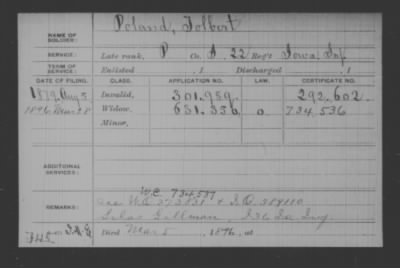 NAME OF SOLDIER: Poland, Tolbert
SERVICE: Late rank, P Co. I, 22 Reg't Iowa Inf
TERM OF SERVICE: Enlisted , 1 Discharged , 1
DATE OF FILING. CLASS. APPLICATION NO. LAW. CERTIFICATE NO.
1879 Aug 5 Invalid, 301.989. 292.602.
1896 Mar 28 Widow, 631.356 o 734.536
Minor,
ADDITIONAL SERVICES:
W.C. 734.537
REMARKS: see W.C. + I.O.
Silas Gillman, I 36 Ia Inf
Died Mar 5, 1896, at